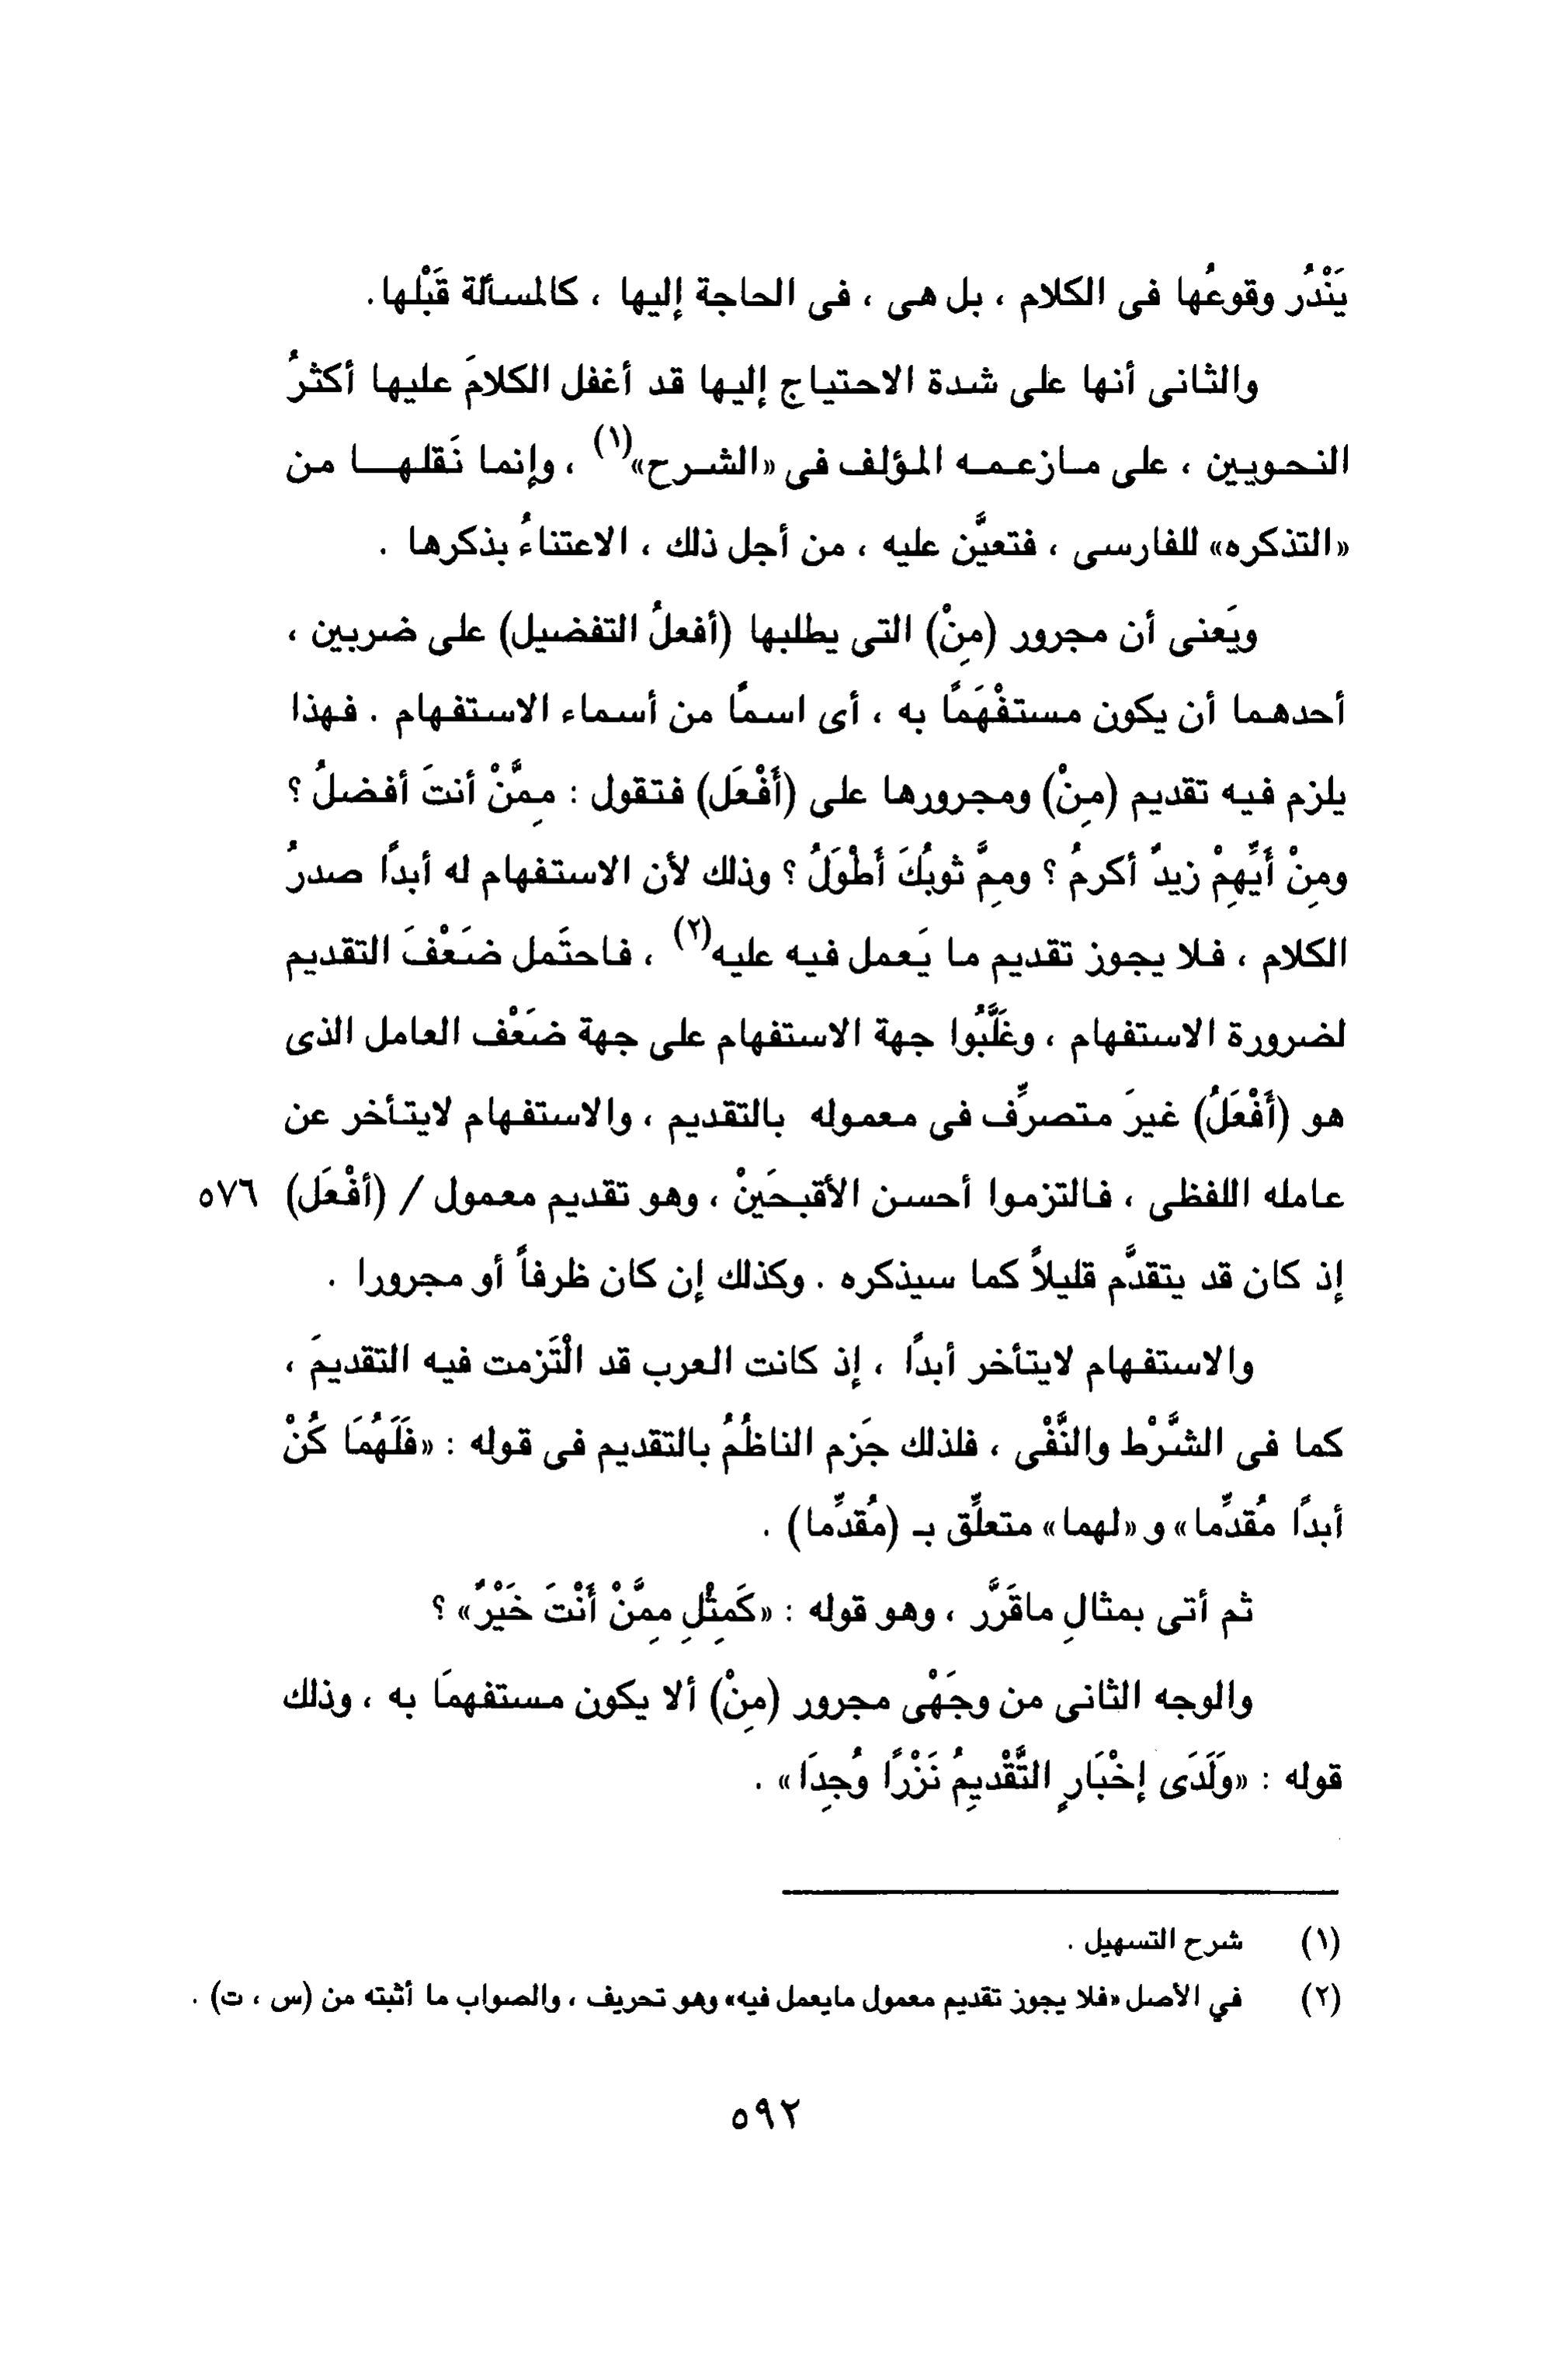 يَنْدُر وقوعُها فى الكلام ، بل هى ، فى الحاجة إليها ، كالمسألة قَبْلها.
والثانى أنها على شدة الاحتياج إليها قد أغفل الكلامَ عليها أكثرُ
النحويين ، على مازعمه المؤلف فى «الشرح»(١) ، وإنما نَقلها من
«التذكره» للفارسى ، فتعيَّن عليه ، من أجل ذلك ، الاعتناءُ بذكرها .
ويَعنى أن مجرور (مِنْ) التى يطلبها (أفعلُ التفضيل) على ضربين ،
أحدهما أن يكون مستفْهَمًا به ، أى اسمًا من أسماء الاستفهام . فهذا
يلزم فيه تقديم (مِنْ) ومجرورها على (أَفْعَل) فتقول : مِمَّنْ أنتَ أفضلُ ؟
ومِنْ أَيِّهِمْ زيدٌ أكرمُ ؟ ومِمَّ ثوبُكَ أَطْوَلُ ؟ وذلك لأن الاستفهام له أبدًا صدرُ
الكلام ، فلا يجوز تقديم ما يَعمل فيه عليه(٢) ، فاحتَمل ضَعْفَ التقديم
لضرورة الاستفهام ، وغَلَّبُوا جهة الاستفهام على جهة ضَعْف العامل الذى
هو (أَفْعَلُ) غيرَ متصرِّف فى معموله بالتقديم ، والاستفهام لايتأخر عن
عامله اللفظى ، فالتزموا أحسن الأقبحَيْن ، وهو تقديم معمول / (أفْعَل) ٥٧٦
إذ كان قد يتقدَّم قليلاً كما سيذكره . وكذلك إن كان ظرفاً أو مجرورا .
والاستفهام لايتأخر أبدًا ، إذ كانت العرب قد الْتَزمت فيه التقديمَ ،
كما فى الشَّرْط والنَّفْى ، فلذلك جَزم الناظُمُ بالتقديم فى قوله : «فَلَهُمَا كُنْ
أبدًا مُقدِّما» و «لهما» متعلِّق بـ (مُقدِّما) .
ثم أتى بمثالِ ماقَرَّر ، وهو قوله : «كَمِثْلِ مِمَّنْ أَنْتَ خَيْرٌ» ؟
والوجه الثانى من وجَهْى مجرور (مِنْ) ألا يكون مستفهمَا به ، وذلك
قوله : «وَلَدَى إخْبَارٍ التَّقْدِيمُ نَزْرًا وُجِدَا» .
(١) شرح التسهيل .
(٢) في الأصل «فلا يجوز تقديم معمول مايعمل فيه» وهو تحريف ، والصواب ما أثبته من (س ، ت) .
٥٩٢